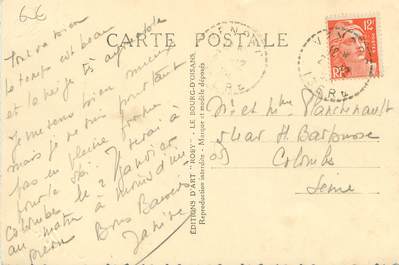 66
CARTE POSTALE
Tout va bien
le temps est beau
et la neige
Je me sens bien mieux
mais je ne suis pourtant
pas en pleine forme
pour le ski. Je serai à
Colombes le 2 Janvier
au matin à moins d'im-
prévu
Bons Baisers
Janine
EDITIONS D'ART "ROBY" - LE BOURG-D'OISANS
Reproduction interdite - Marque et modèle déposés
12F
RF
Mr et Mme
H. Barbusse
Colombes
Seine